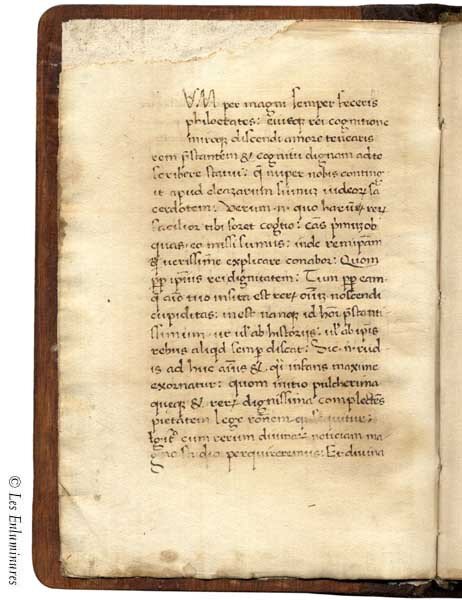 VM per magni semper feceris
philocrates: eiusque rei cognitione
miroque discendi amore tenearis
rem prestantem & cognitu dignam ad te
scribere statui: q nuper nobis contingit
it apud eleazarum summum iudeorum sa
cerdotem: Verum .n. quo harum rerum
facilior tibi foret cogitio: cas primum ob
quas eo missi sumus: inde rem ipsam
& verissime explicare conabor: Quom
pp ipsius rei dignitatem: Tum pp eam
q aio tuo insita est rerum omnium noscendi
cupiditas: inest nanque id homini prestanti
ssimum ut vel ab historiis: vel ab ipis
rebus aliqd semp discat: Sic .n. rud
is ad huc animus & qsi infans maxime
exornatur: quom initio pulcherima
queque & rerum dignissima complectens
pietatem lege
cum rerum divinarum noticiam ma
gno studio perquireremus: Et divina
© Les Enluminures